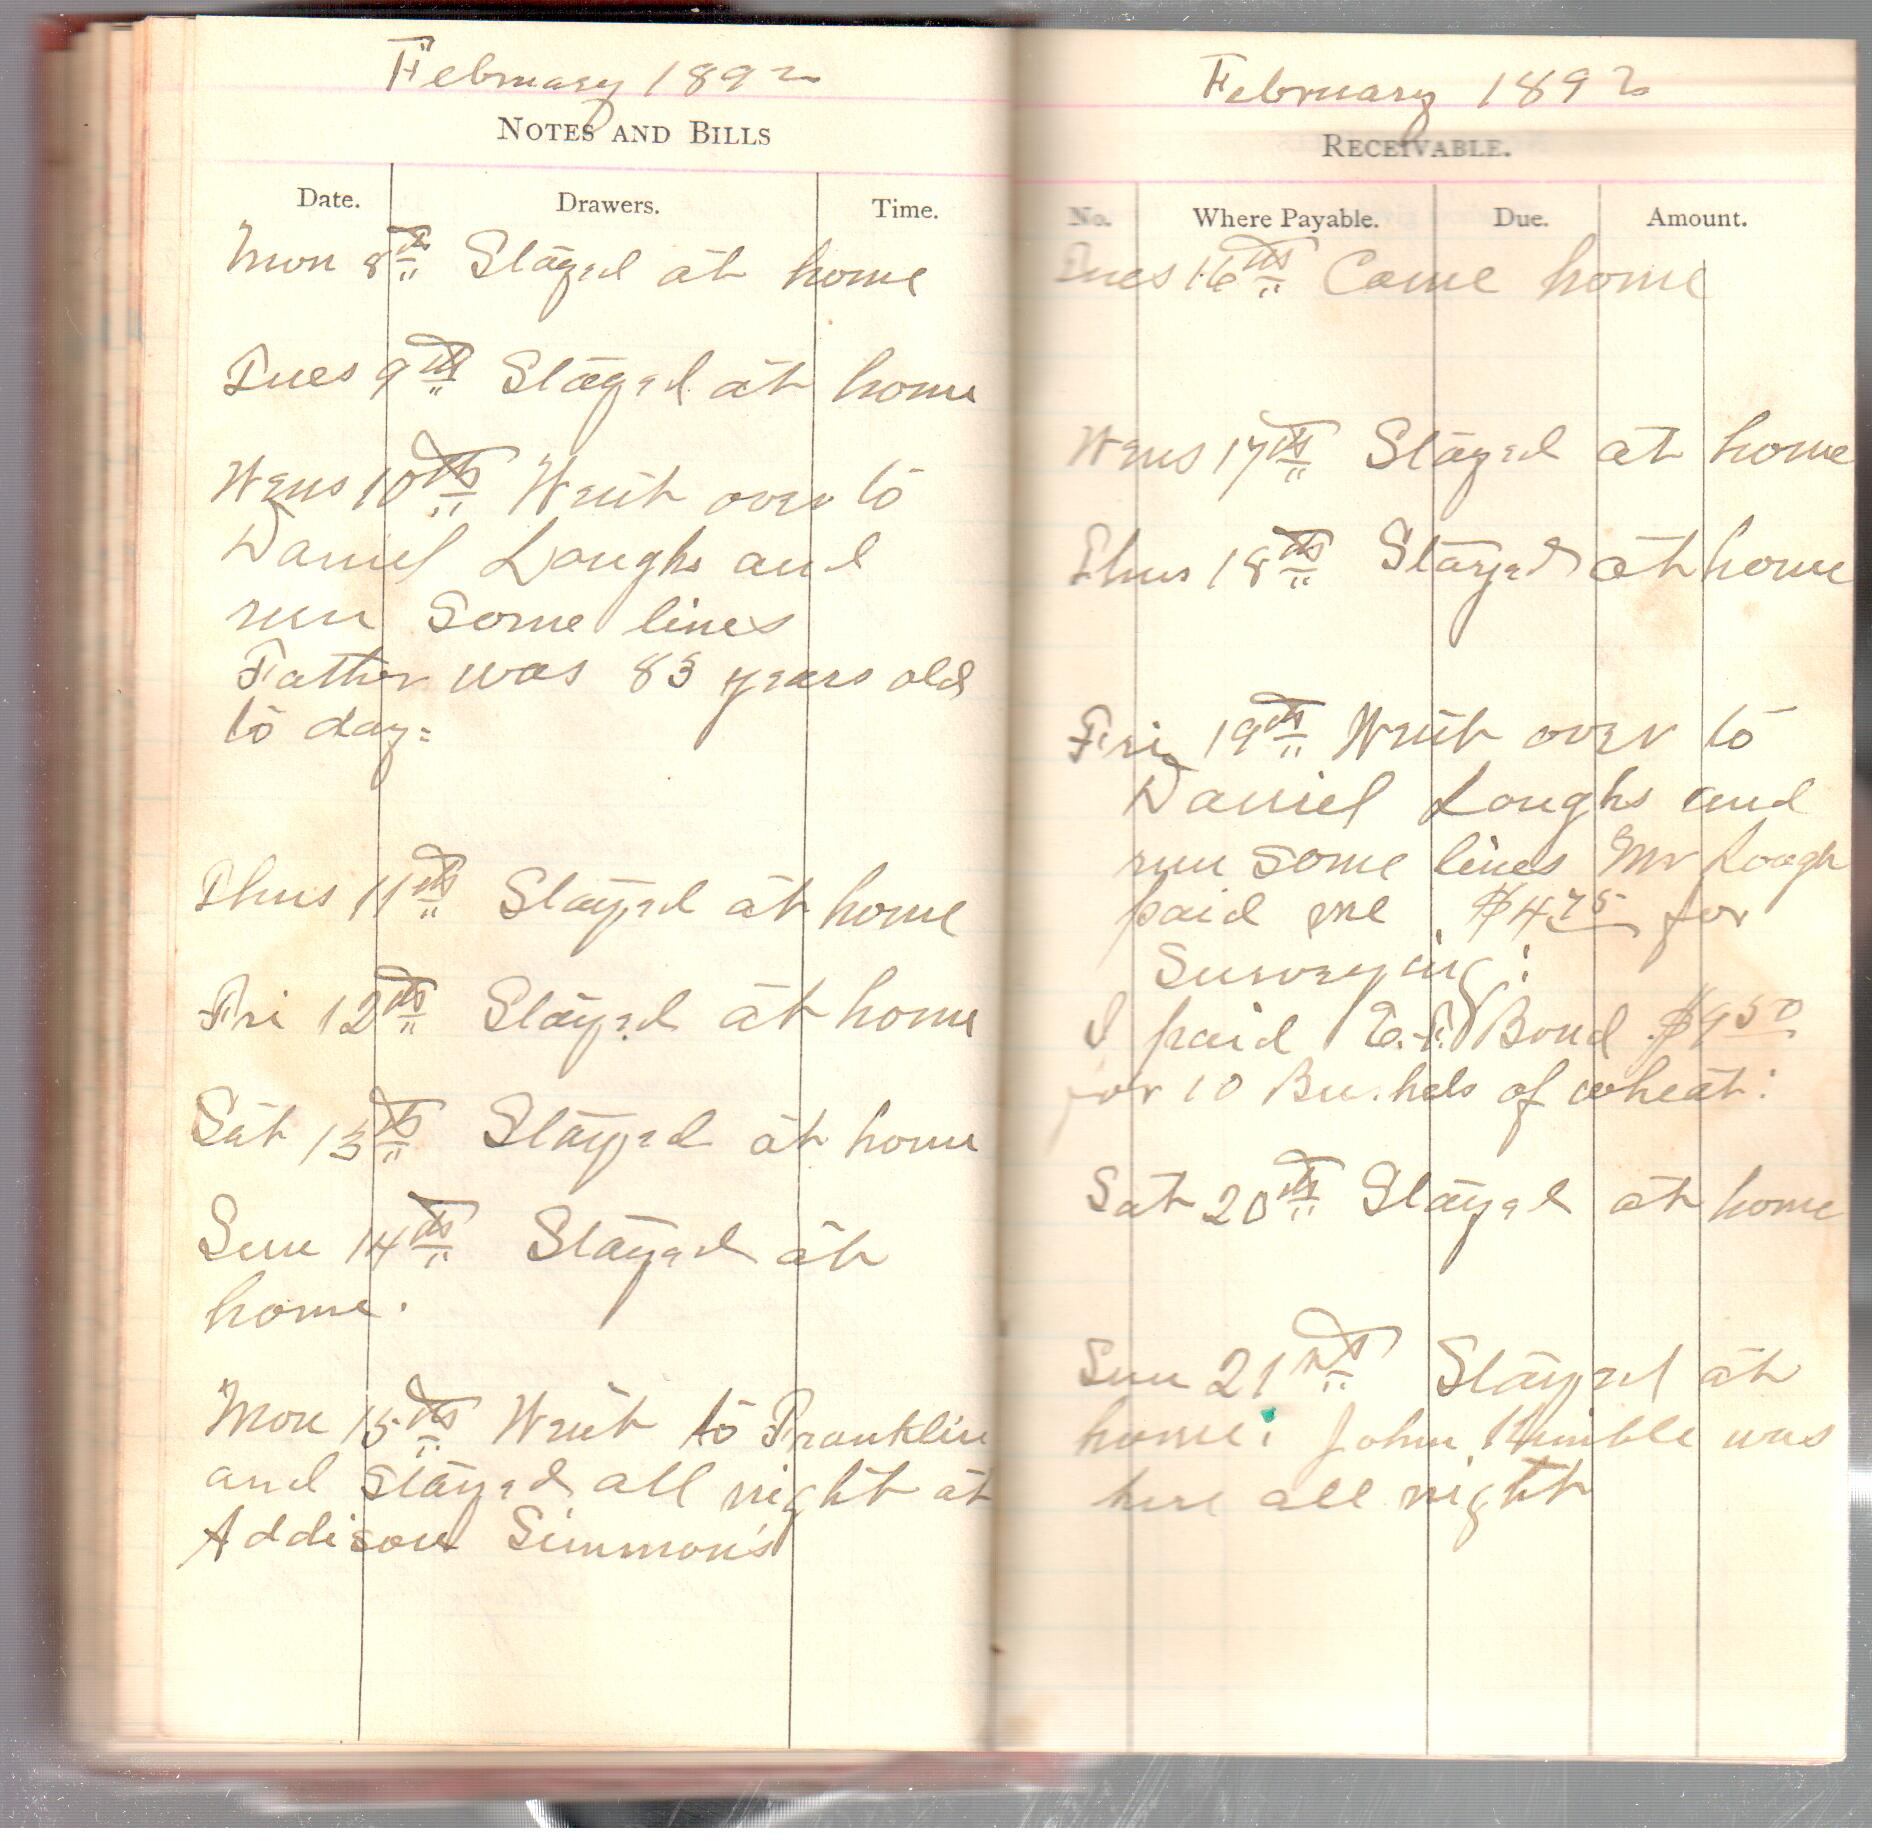 February 1892
NOTES AND BILLS
Date. Drawers. Time.
Mon 8th Stayed at home
Tues 9th Stayed at home
Wens 10th Went over to
Daniel Loughs and
run Some lines
Father was 83 years old
to day:
Thus 11th Stayed at home
Fri 12th Stayed at home
Sat 13th Stayed at home
Sun 14th Stayed at
home.
Mon 15th Went to Franklin
and Stayed all night at
Addison Simmon's
February 1892
RECEIVABLE.
No. Where Payable. Due. Amount.
Tues 16th Came home
Wens 17th Stayed at home
Thus 18th Stayed at home
Fri 19th Went over to
Daniel Loughs and
run some lines Mr Lough
paid me $4.75 for
Surveying:
I paid Bond $9.50
for 10 Bushels of wheat:
Sat 20th Stayed at home
Sun 21st Stayed at
home: John Kimble was
here all night